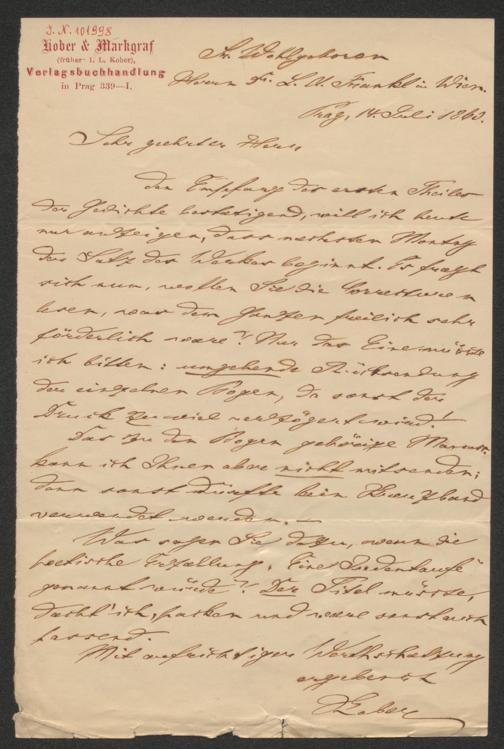 J. N. 101998
Kober & Markgraf
(früher I. L. Kober),
Verlagsbuchhandlung
in Prag 339—I.
Sr. Wohlgeboren
Herrn Dr. L. A. Frankl in Wien.
Prag, 14. Juli 186
Sehr geehrter Herr
den Empfang des ersten Theiles
der Gedichte bestätigend, will ich heute
nur anzeigen, dass nächsten Montag
der Satz des Werkes beginnt. Es fragt
sich nun, wollen Sie die Correcturen
lesen, was dem Ganzen freilich sehr
förderlich wäre? Nur das Eine müsste
ich bitten: umgehende Rücksendung
der einzelnen Bogen, da sonst der
Druck zuviel verzögert wird!
Das zu den Bogen gehörige Manus-
kann ich Ihnen aber nicht mitsenden;
denn sonst dürfte kein Kreuzband
verwendet werden. —
Was sagen Sie dazu, wenn die
poetische Erzählung „Eine Judentaufe“
genannt würde? Der Titel müsste,
dächt' ich, packen und wäre sonst auch
passend.
Mit aufrichtiger Werthschätzung
ergebenst
Kober